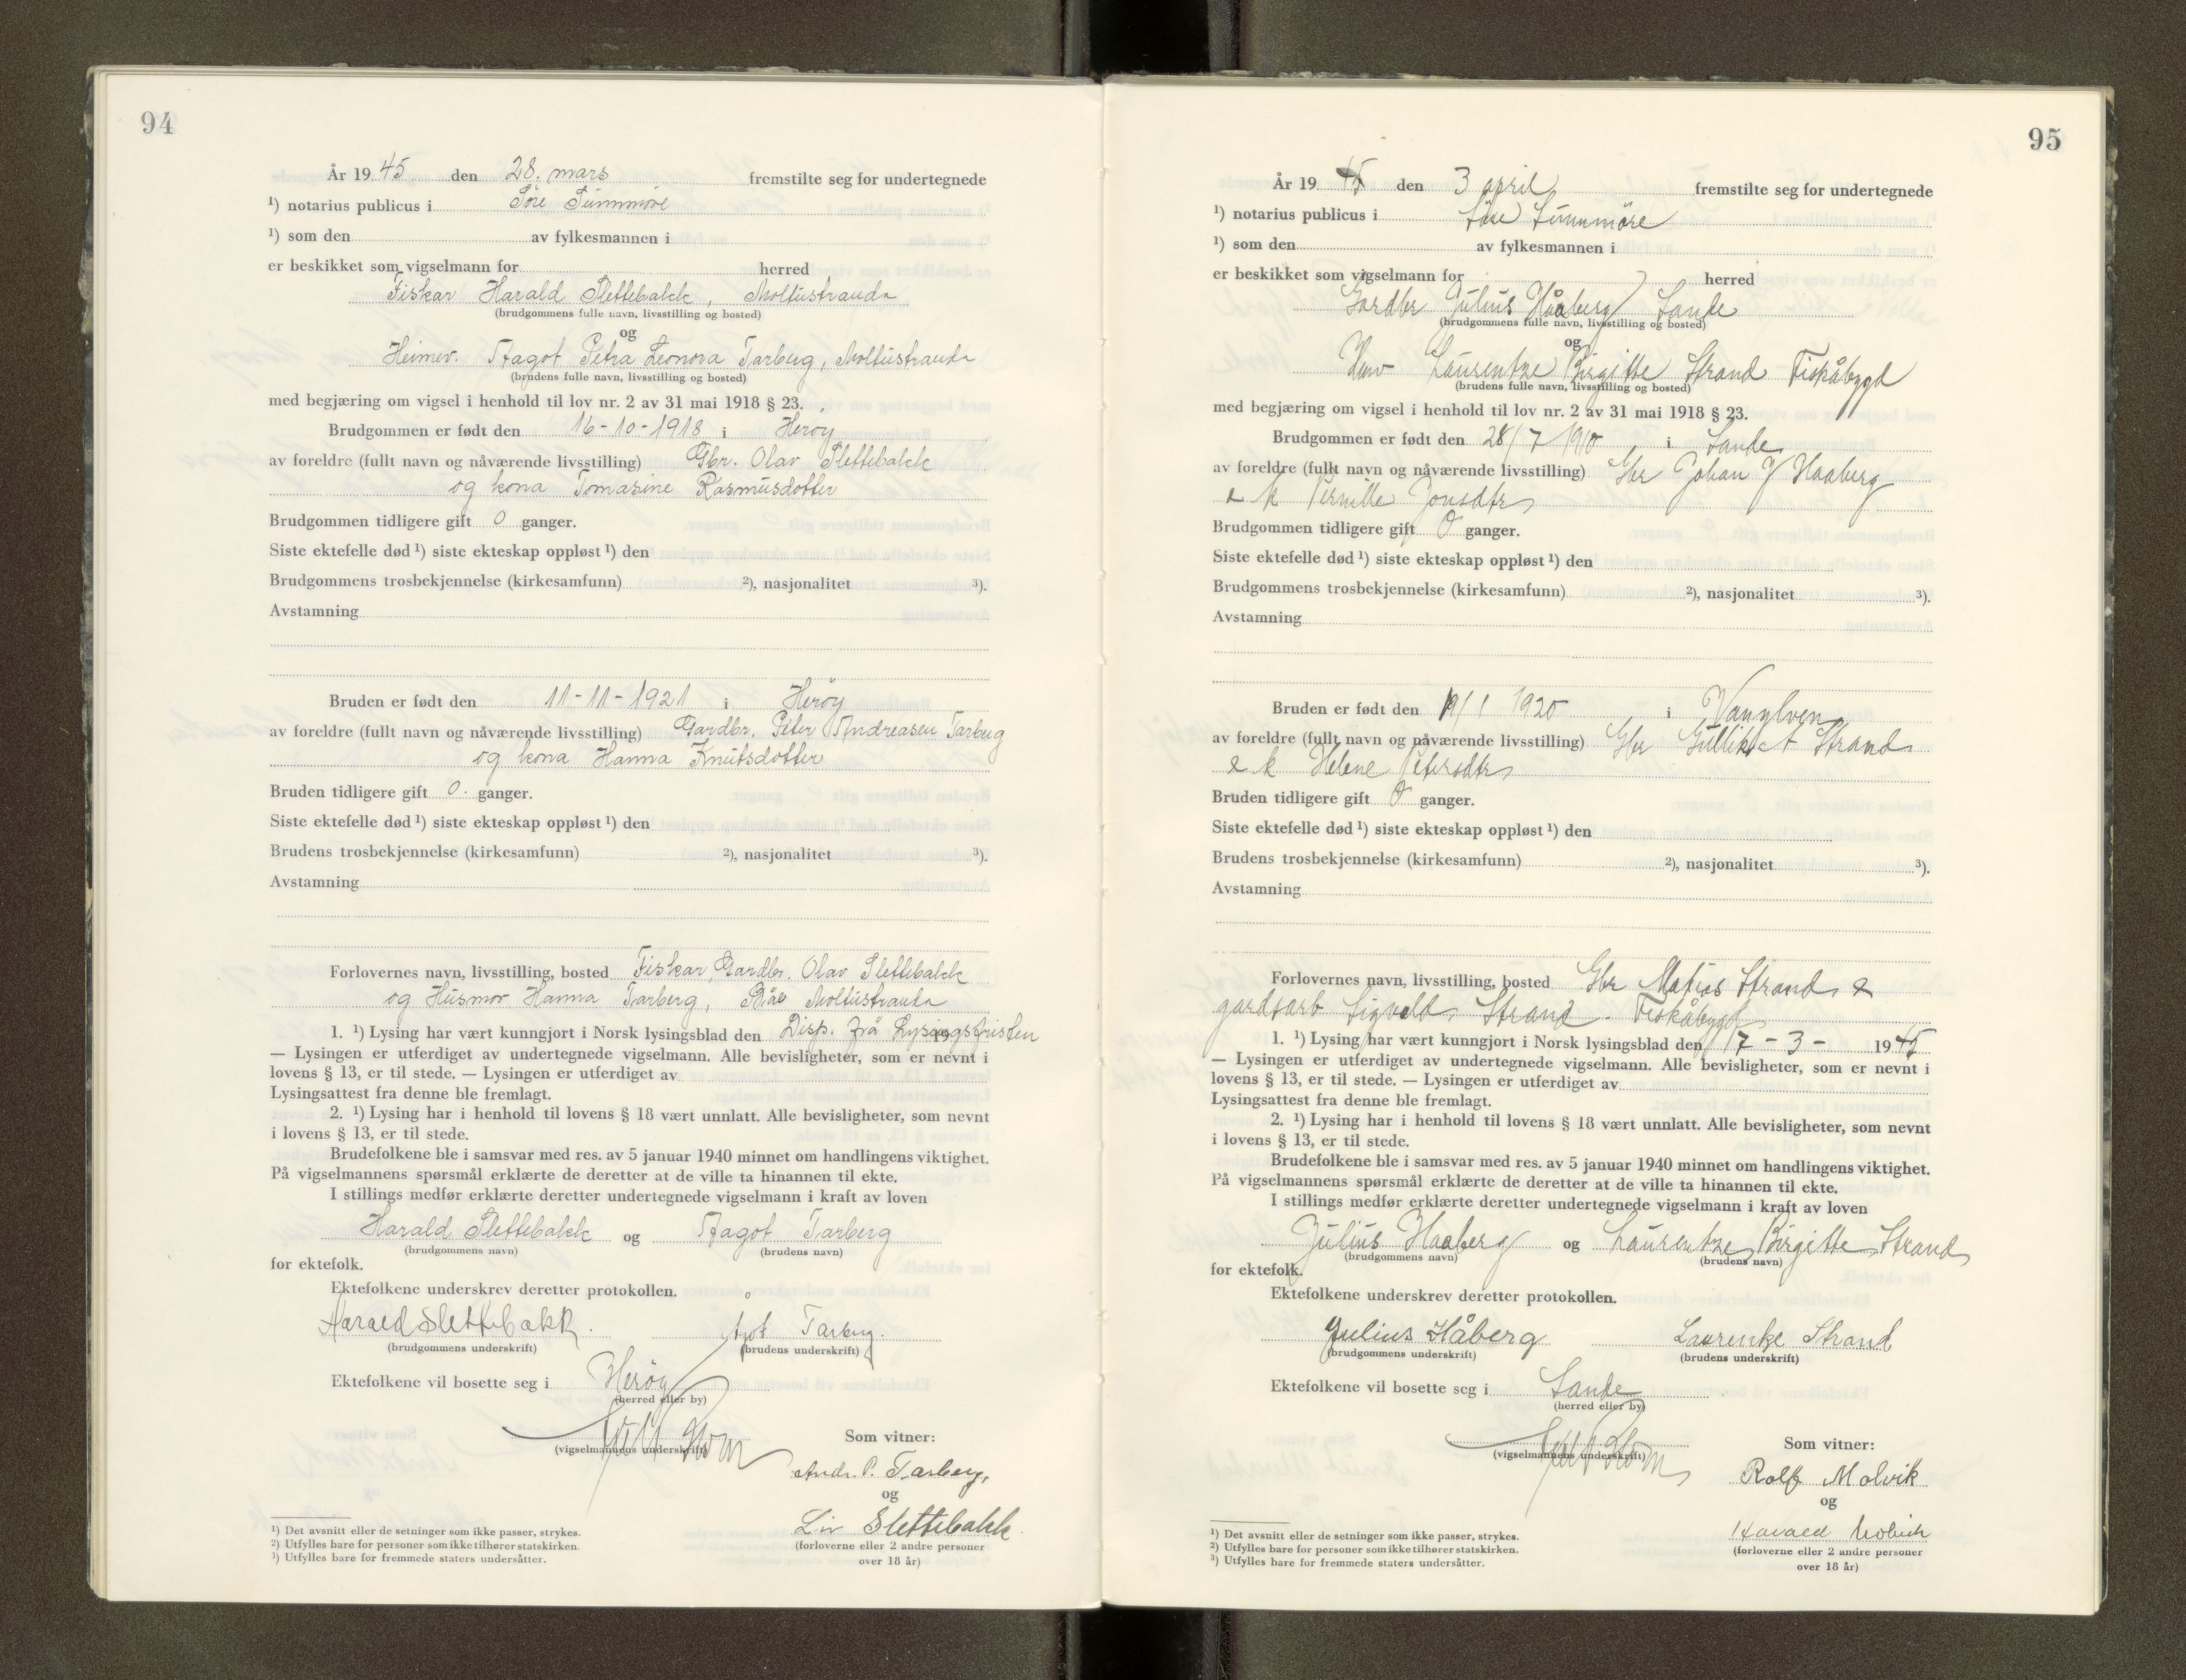 94
År 19 45 den 28. mars fremstilte seg for undertegnede
¹) notarius publicus i Söre Sunnmöre
¹) som den av fylkesmannen i
er beskikket som vigselmann for herred
Fiskar Harald Slettebakk, Moltustranda
(brudgommens fulle navn, livsstilling og bosted)
og
Heimev. Aagot Petra Leonora Tarberg, Moltustranda
(brudens fulle navn, livsstilling og bosted)
med begjæring om vigsel i henhold til lov nr. 2 av 31 mai 1918 § 23.
Brudgommen er født den 16-10-1918 i Heröy
av foreldre (fullt navn og nåværende livsstilling) Gbr. Olav Slettebakk
og kona Tomasine Rasmusdotter
Brudgommen tidligere gift 0 ganger.
Siste ektefelle død ¹) siste ekteskap oppløst ¹) den
Brudgommens trosbekjennelse (kirkesamfunn) ²), nasjonalitet ³).
Avstamning
Bruden er født den 11-11-1921 i Heröy
av foreldre (fullt navn og nåværende livsstilling) Gardbr. Peter Andreasen Tarberg
og kona Hanna Knutsdotter
Bruden tidligere gift 0. ganger.
Siste ektefelle død ¹) siste ekteskap oppløst ¹) den
Brudens trosbekjennelse (kirkesamfunn) ²), nasjonalitet ³).
Avstamning
Forlovernes navn, livsstilling, bosted Fiskar, Gardbr. Olav Slettebakk
og Husmor Hanna Tarberg, Moltustranda
1. ¹) Lysing har vært kunngjort i Norsk lysingsblad den Disp. frå Lysingsfristen 19
— Lysingen er utferdiget av undertegnede vigselmann. Alle bevisligheter, som er nevnt i
lovens § 13, er til stede. — Lysingen er utferdiget av
Lysingsattest fra denne ble fremlagt.
2. ¹) Lysing har i henhold til lovens § 18 vært unnlatt. Alle bevisligheter, som nevnt
i lovens § 13, er til stede.
Brudefolkene ble i samsvar med res. av 5 januar 1940 minnet om handlingens viktighet.
På vigselmannens spørsmål erklærte de deretter at de ville ta hinannen til ekte.
I stillings medfør erklærte deretter undertegnede vigselmann i kraft av loven
Harald Slettebakk og Aagot Tarberg
(brudgommens navn) (brudens navn)
for ektefolk.
Ektefolkene underskrev deretter protokollen.
Harald Slettebakk. Ågot Tarberg.
(brudgommens underskrift) (brudens underskrift)
Ektefolkene vil bosette seg i Herøy
(herred eller by)
(vigselmannens underskrift)
Som vitner:
Andr. P. Tarberg,
og
Liv Slettebakk
(forloverne eller 2 andre personer
over 18 år)
¹) Det avsnitt eller de setninger som ikke passer, strykes.
²) Utfylles bare for personer som ikke tilhører statskirken.
³) Utfylles bare for fremmede staters undersåtter.
95
År 19 45 den 3 april fremstilte seg for undertegnede
¹) notarius publicus i Söre Sunnmöre
¹) som den av fylkesmannen i
er beskikket som vigselmann for herred
Gardbr Julius Håaberg Sande
(brudgommens fulle navn, livsstilling og bosted)
og
Laurentze Birgitte Strand Fiskåbygd
(brudens fulle navn, livsstilling og bosted)
med begjæring om vigsel i henhold til lov nr. 2 av 31 mai 1918 § 23.
Brudgommen er født den 28/7 1910 i Sande
av foreldre (fullt navn og nåværende livsstilling) Gbr Johan J Haaberg
& k Pernille Jonsdtr
Brudgommen tidligere gift 0 ganger.
Siste ektefelle død ¹) siste ekteskap oppløst ¹) den
Brudgommens trosbekjennelse (kirkesamfunn) ²), nasjonalitet ³).
Avstamning
Bruden er født den 19/1 1920 i Vanylven
av foreldre (fullt navn og nåværende livsstilling) Gbr Gullik A Strand
& k Helene Petersdtr
Bruden tidligere gift 0 ganger.
Siste ektefelle død ¹) siste ekteskap oppløst ¹) den
Brudens trosbekjennelse (kirkesamfunn) ²), nasjonalitet ³).
Avstamning
Forlovernes navn, livsstilling, bosted Gbr Matias Strand &
gardsarb Sigvald Strand. Fiskåbygd
1. ¹) Lysing har vært kunngjort i Norsk lysingsblad den 17 - 3 - 19 45
— Lysingen er utferdiget av undertegnede vigselmann. Alle bevisligheter, som er nevnt i
lovens § 13, er til stede. — Lysingen er utferdiget av
Lysingsattest fra denne ble fremlagt.
2. ¹) Lysing har i henhold til lovens § 18 vært unnlatt. Alle bevisligheter, som nevnt
i lovens § 13, er til stede.
Brudefolkene ble i samsvar med res. av 5 januar 1940 minnet om handlingens viktighet.
På vigselmannens spørsmål erklærte de deretter at de ville ta hinannen til ekte.
I stillings medfør erklærte deretter undertegnede vigselmann i kraft av loven
Julius Haaberg og Laurentze Birgitte Strand
(brudgommens navn) (brudens navn)
for ektefolk.
Ektefolkene underskrev deretter protokollen.
Julius Håberg Laurentze Strand
(brudgommens underskrift) (brudens underskrift)
Ektefolkene vil bosette seg i Sande
(herred eller by)
(vigselmannens underskrift)
Som vitner:
Rolf Molvik
og
Harald Molvik
(forloverne eller 2 andre personer
over 18 år)
¹) Det avsnitt eller de setninger som ikke passer, strykes.
²) Utfylles bare for personer som ikke tilhører statskirken.
³) Utfylles bare for fremmede staters undersåtter.